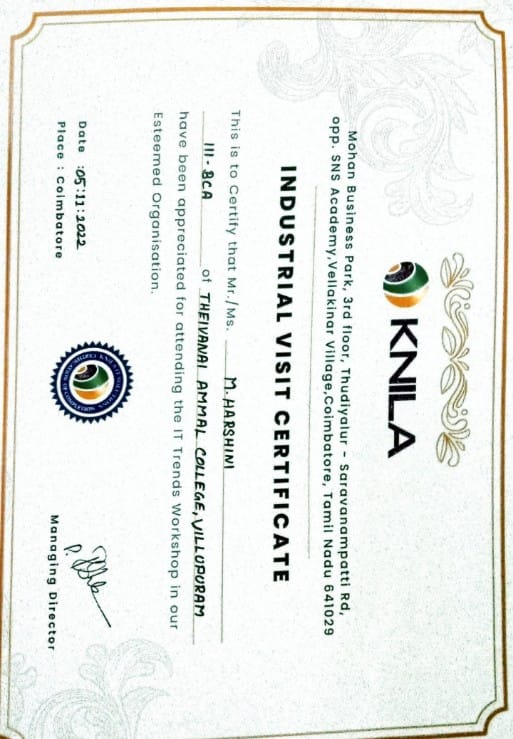 KNILA
Mohan Business Park, 3rd floor, Thudiyalur - Saravanampatti Rd,
opp. SNS Academy,Vellakinar Village,Coimbatore, Tamil Nadu 641029
INDUSTRIAL VISIT CERTIFICATE
This is to Certify that Mr./Ms. M. HARSHINI
III-BCA of THEIVANAI AMMAL COLLEGE, VILLUPURAM
have been appreciated for attending the IT Trends Workshop in our
Esteemed Organisation.
KNILA IT SOLUTIONS
CERTIFICATION OF COMPLETION
Date :05:11:2022
Place : Coimbatore
Managing Director